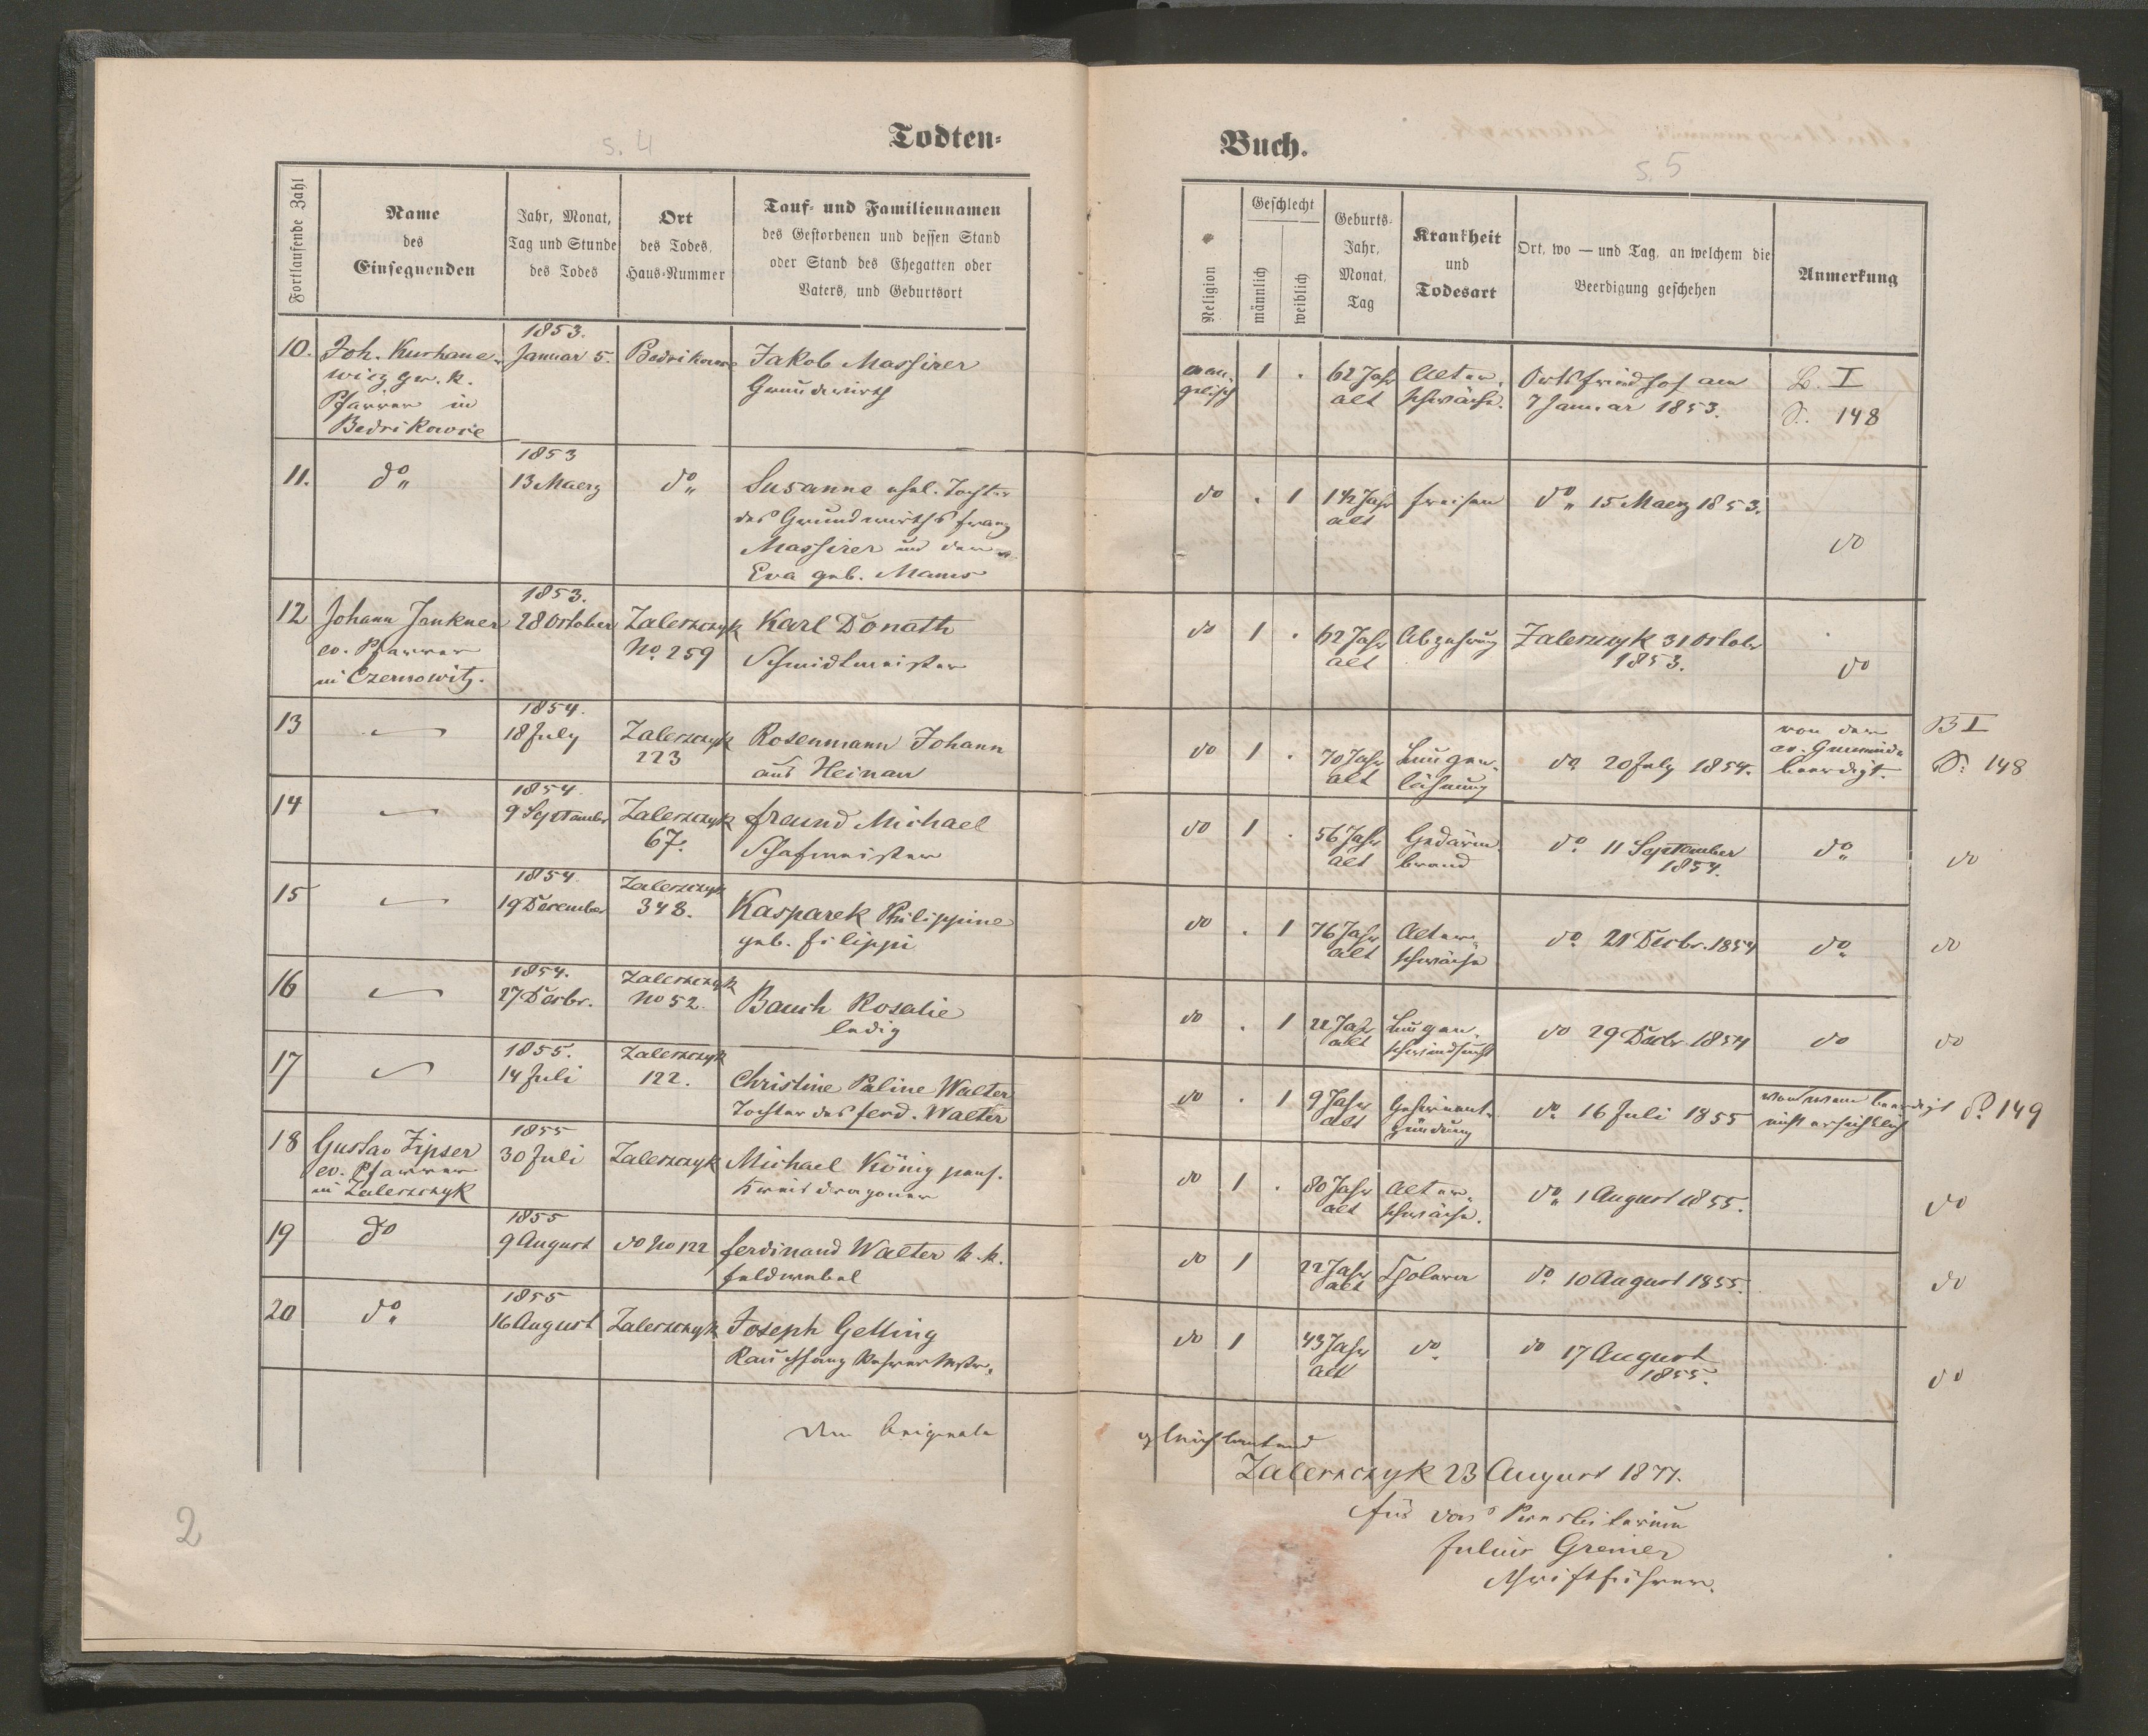 Todten-
s. 4
Fortlaufende Zahl
Name
des
Einsegnenden
Jahr, Monat,
Tag und Stunde
des Todes
Ort
des Todes,
Haus-Nummer
Tauf- und Familiennamen
des Gestorbenen und dessen Stand
oder Stand des Ehegatten oder
Vaters, und Geburtsort
10.
Joh. Kurhane-
wicz gr. k.
Pfarrer in
Bedrikowce
1853.
Januar 5.
Bedrikowce
Jakob Massirer
Grundwirth
11.
do
1853
13 Maerz
do
Susanne ehel. Tochter
des Grundwirths Franz
Massirer und der
Eva geb. Manws
12
Johann Jenkner
ev. Pfarrer
in Czernowitz.
1853.
28 October
Zaleszczyk
No. 259
Karl Donath
Schmidtmeister
13
1854.
18 July
Zaleszczyk
223
Rosenmann Johann
aus Heinau
14
1854.
9 September
Zaleszczyk
67.
Freund Michael
Schafmeister
15
1854.
19 December
Zaleszczyk
348.
Kasparek Philippine
geb. Filippi
16
1854.
27 Decbr.
Zaleszczyk
No 52.
Bauch Rosalie
ledig
17
1855.
14 Juli
Zaleszczyk
122.
Christine Paline Walter
Tochter des Ferd. Walter
18
Gustav Zipser
ev. Pfarrer
in Zaleszczyk
1855
30 Juli
Zaleszczyk
Michael König pens.
Kreisdragoner
19
do
1855
9 August
do No 122
Ferdinand Walter k. k.
Feldwebel
20
do
1855
16 August
Zaleszczyk
Joseph Gelling
Rauchfangkehrer
dem Originale
2
Buch.
s. 5
Religion
Geschlecht
männlich
weiblich
Geburts-
Jahr,
Monat,
Tag
Krankheit
und
Todesart
Ort, wo — und Tag, an welchem die
Beerdigung geschehen
Anmerkung
evan-
gelisch
1
62 Jahr
alt
Alter-
schwäche.
Ortsfriedhof am
7 Januar 1853.
B. I
S. 148
do
1
1½ Jahr
alt
Freisen
do 15 Maerz 1853.
do
do
1
62 Jahr
alt
Abzehrung
Zaleszczyk 31 October
1853.
do
do
1
70 Jahr
alt
Lungen-
lähmung
do 20 July 1854.
von der
ev. Gemeinde
beerdigt.
B I
S. 148
do
1
56 Jahr
alt
Gedärm-
brand
do 11 September
1854.
do
do
do
1
76 Jahr
alt
Alter-
schwäche
do 21 Decbr. 1854
do
do
do
1
22 Jahr
alt
Lungen-
schwindsucht
do 29 Decbr 1854
do
do
do
1
9 Jahr
alt
Gehirnent-
zündung
do 16 Juli 1855
von wem beerdigt
nicht ersichtlich
S. 149
do
1
80 Jahr
alt
Alter-
schwäche.
do 1 August 1855.
do
do
1
22 Jahr
alt
Cholera
do 10 August 1855.
do
do
1
43 Jahr
alt
do
do 17 August
1855.
do
gleichlautend
Zaleszczyk 23 August 1877.
Für das Presbiterium
Julius Greiner
Schriftführer.